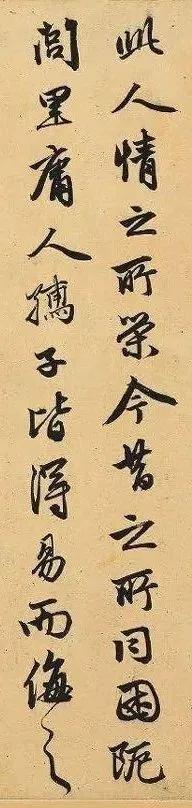 此人情之所榮今昔之所同困阨
閭里庸人孺子皆得易而侮之